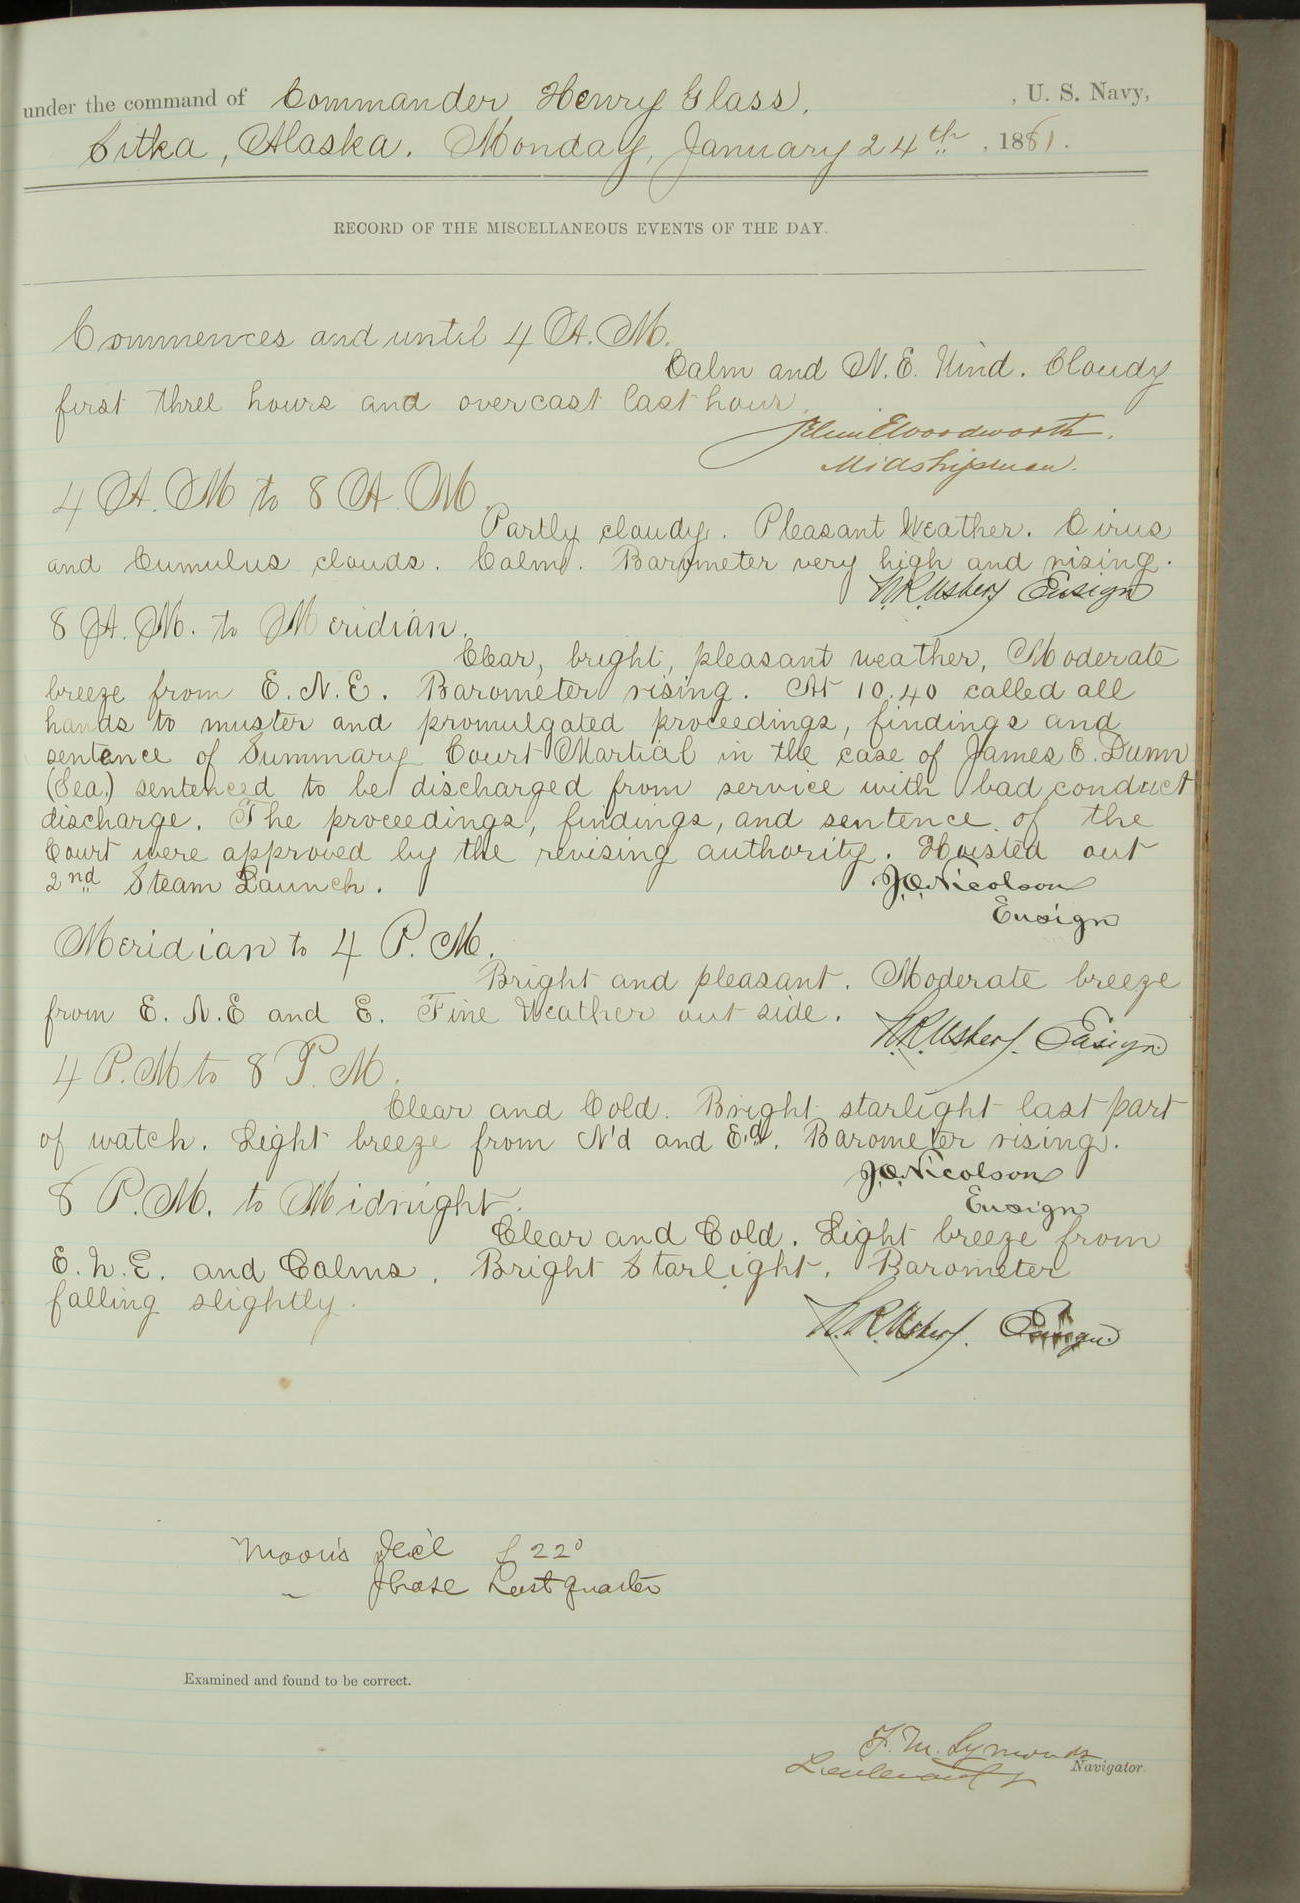 under the command of Commander Henry Glass, , U. S. Navy,
Sitka, Alaska. Monday, January 24th , 1881.
RECORD OF THE MISCELLANEOUS EVENTS OF THE DAY.
Commences and until 4 A.M.
Calm and N.E. Wind. Cloudy
first three hours and overcast last hour.
Woodworth.
Midshipman.
4 A.M to 8 A.M.
Partly cloudy. Pleasant Weather. Cirus
and Cumulus clouds. Calm. Barometer very high and rising.
N.R. Usher, Ensign
8 A.M. to Meridian.
Clear, bright, pleasant weather, Moderate
breeze from E.N.E. Barometer rising. At 10.40 called all
hands to muster and promulgated proceedings, findings and
sentence of Summary Court Martial in the case of James E. Dunn
(Sea.) sentenced to be discharged from service with bad conduct
discharge. The proceedings, findings, and sentence of the
Court were approved by the revising authority. Hoisted out
2nd Steam Launch.
J.O. Nicolson
Ensign
Meridian to 4 P.M.
Bright and pleasant. Moderate breeze
from E.N.E and E. Fine Weather out side.
N.R. Usher. Ensign.
4 P.M to 8 P.M.
Clear and Cold. Bright starlight last part
of watch. Light breeze from N'd and E'd. Barometer rising.
J.O. Nicolson
Ensign
8 P.M. to Midnight.
Clear and Cold. Light breeze from
E.N.E. and Calms. Bright Starlight. Barometer
falling slightly.
N.R. Usher. Ensign.
Moon's Dec'l 22°
" Phase Last quarter
Examined and found to be correct.
F. M. Symonds
Lieutenant Navigator.